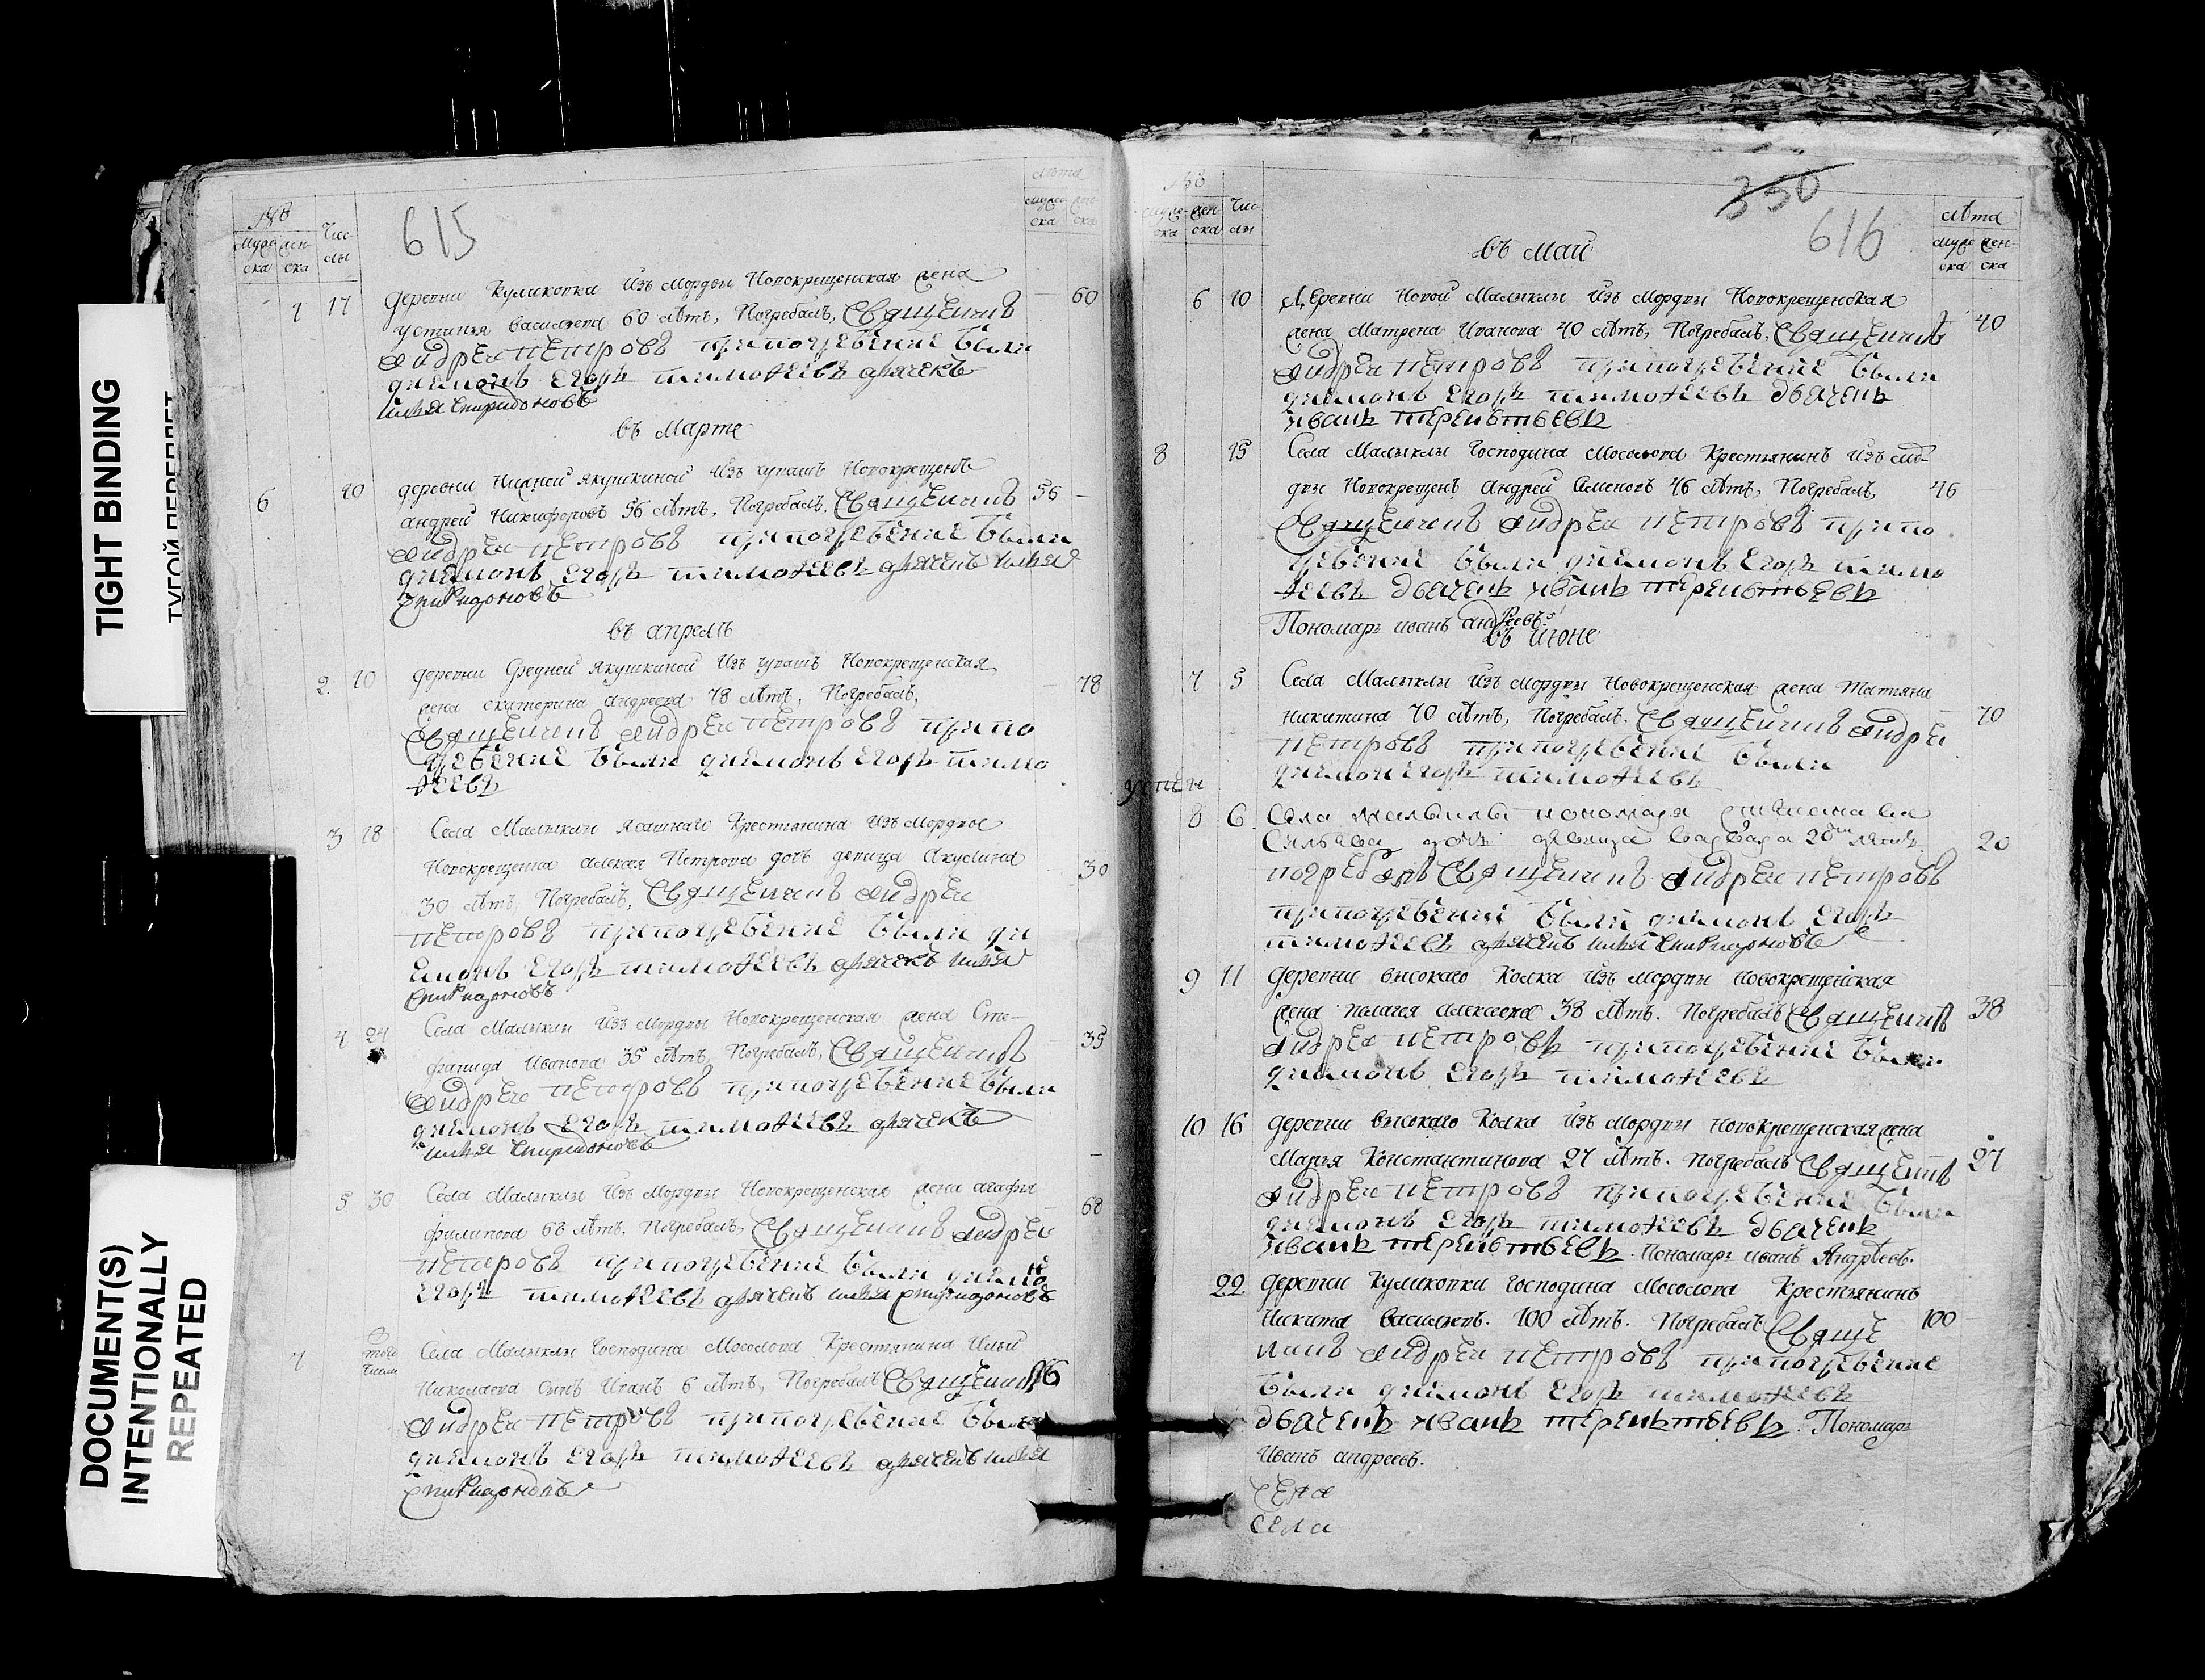 TIGHT BINDING
ТУГОЙ ПЕРЕПЛЕТ
DOCUMENT(S)
INTENTIONALLY
REPEATED
615
№
муже
ска
жен-
ска
Чис-
лы
лѣта
муже
ска
1 17 деревни Куликовки Изъ Мордвы Новокрещенская жена 60
устинья васильева 60 лѣтъ, Погребалъ, Священникъ
Андреи петровъ при погребение были
диямонъ егоръ тимофеевъ дьячекъ
илья спиридоновъ
въ Марте
6 10 деревни Нижней якушкиной Изъ чувашъ Новокрещенъ
андрей Никифоровъ 56 лѣтъ, Погребалъ, Священникъ 56
Андреи петровъ при погребение были
диямонъ егоръ тимофеевъ дьячекъ илья
спиридоновъ
въ апрелѣ
2. 10 деревни Средней якушкиной Изъ чувашъ Новокрещенская
жена екатерина андреева 78 лѣтъ, Погребалъ, 78
Священникъ Андреи петровъ при по
гребение были диямонъ егоръ тимо
феевъ
3 18 Села Малыклы ясашнаго Крестьянина Изъ Мордвы
Новокрещенна алексея Петрова дочь девица Акулина 30
30 лѣтъ, Погребалъ, Священникъ Андреи
петровъ при погребение были ди
ямонъ егоръ тимофеевъ дьячекъ илья
спиридоновъ
4 24 Села Малыклы Изъ Мордвы Новокрещенская жена Сте-
фанида Иванова 35 лѣтъ, Погребалъ, Священникъ 35
Андреи петровъ при погребение были
диямонъ егоръ тимофеевъ дьячекъ
илья спиридоновъ
5 30 Села Малыклы Изъ Мордвы Новокрещенская жена агафья
филипова 68 лѣтъ. Погребалъ, Священникъ Андреи 68
петровъ при погребение были диямонъ
егоръ тимофеевъ дьячекъ илья спиридоновъ
7 того числа Села Малыклы Господина Мосолова Крестьянина Ильи
Николаева сынъ Иванъ 6 лѣтъ, Погребалъ Священникъ 6
Андреи петровъ при погребение были
диямонъ егоръ тимофеевъ дьячекъ илья
спиридоновъ
350
616
№
муже
ска
жен-
ска
Чис-
лы
лѣта
муже
ска
жен-
ска
въ маи
6 10 Деревни Новой Малыклы Изъ Мордвы Новокрещенская
жена Матрена Иванова 40 лѣтъ, Погребалъ, Священникъ 40
Андреи петровъ при погребение были
диямонъ егоръ тимофеевъ дьяченъ
иванъ терентьевъ
8 15 Села Малыклы Господина Мосолова Крестьянинъ Изъ мор-
двы Новокрещенъ Андрей Семеновъ 46 лѣтъ, Погребалъ, 46
Священникъ Андреи петровъ при по
гребение были диямонъ егоръ тимо
феевъ дьяченъ иванъ терентьевъ
Пономарь иванъ андреевъ.
въ июне
7 5 Села Малыклы Изъ Мордвы Новокрещенская жена Татияна
никитина 70 лѣтъ, Погребалъ. Священникъ Андреи 70
петровъ при погребение были
диямон егоръ тимофеевъ
8 6 Села малыклы пономаря
дочь девица варвара 20 лѣтъ 20
погребалъ Священникъ Андреи петровъ
при погребение были диямонъ егоръ
тимофеевъ дьячекъ илья спиридоновъ
9 11 Деревни высокаго Колка Изъ мордвы новокрещенская
жена пелагея алексеева 38 лѣтъ. Погребалъ Священникъ 38
Андреи петровъ при погребение были
диямонъ егоръ тимофеевъ
10 16 деревни высокаго Колка Изъ Мордвы Новокрещенская жена
Марья Константинова 27 лѣтъ. Погребалъ Священникъ 27
Андреи петровъ при погребение были
диямонъ егоръ тимофеевъ дьяченъ
иванъ терентьевъ. Пономарь иванъ Андреевъ.
22 деревни Куликовки Господина Мосолова Крестьянинъ
Никита Васильевъ. 100 лѣтъ. Погребалъ Свяще 100
никъ Андреи петровъ при погребение
были диямонъ егоръ тимофеевъ
дьяченъ иванъ терентьевъ. Пономарь
Иванъ андреевъ.
села
села